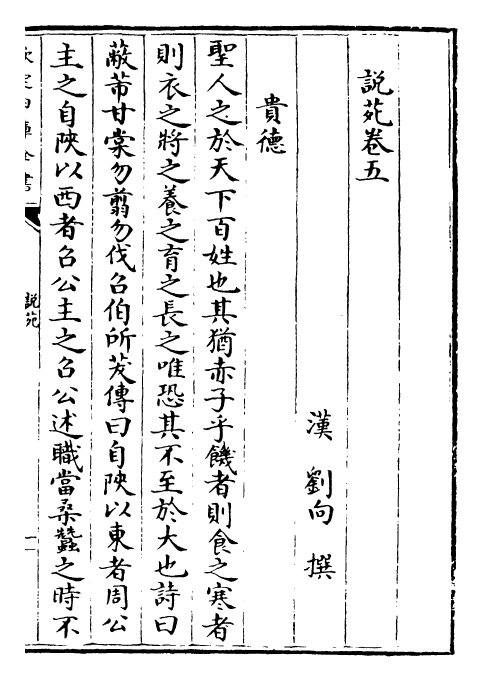 說苑卷五
漢 劉向 撰
貴德
聖人之於天下百姓也其猶赤子乎饑者則食之寒者
則衣之將之養之育之長之唯恐其不至於大也詩曰
蔽芾甘棠勿翦勿伐召伯所茇傳曰自陜以東者周公
主之自陜以西者召公主之召公述職當桑蠶之時不
欽定四庫全書
說苑
一